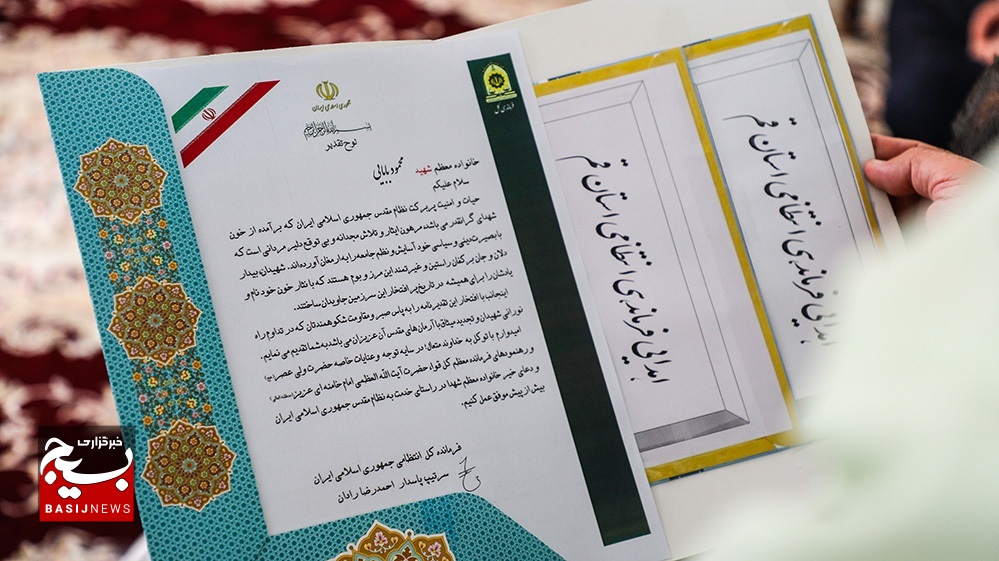 جمهوری اسلامی ایران
بسم الله الرحمن الرحیم
لوح تقدیر
فرماندهی کل
خانواده معظم شهید محمود بابایی
سلام علیکم
حیات و امنیت پر برکت نظام مقدس جمهوری اسلامی ایران که بر آمده از خون
شهدای گرانقدر می باشد، مرهون ایثار و تلاش مجدانه و بی توقع دلیر مردانی است که
با بصیرت دینی و سیاسی خود آسایش و نظم جامعه را به ارمغان آورده اند. شهیدان، بیدار
دلان و جان بر کفان راستین و غیرتمند این مرز و بوم هستند که با نثار خون خود نام و
یادشان را برای همیشه در تاریخ پر افتخار این سرزمین جاویدان ساختند.
اینجانب با افتخار این تقدیر نامه را به پاس صبر و مقاومت شکوهمندتان که در تداوم راه
نورانی شهیدان و تجدید میثاق با آرمان های مقدس آن عزیزان می باشد به شما تقدیم می نمایم.
امیدوارم با توکل به خداوند متعال؛ در سایه توجه و عنایات خاصه حضرت ولی عصر (عج)
و رهنمودهای فرمانده معظم کل قوا، حضرت آیت الله العظمی امام خامنه ای عزیز (مدظله العالی)
و دعای خیر خانواده معظم شهدا در راستای خدمت به نظام مقدس جمهوری اسلامی ایران
بیش از پیش موفق عمل کنیم.
فرمانده کل انتظامی جمهوری اسلامی ایران
سرتیپ پاسدار احمدرضا رادان
اهدائی فرماندهی انتظامی استان قم
اهدائی فرماندهی انتظامی استان قم
خبرگزاری
بسیج
BASIJNEWS